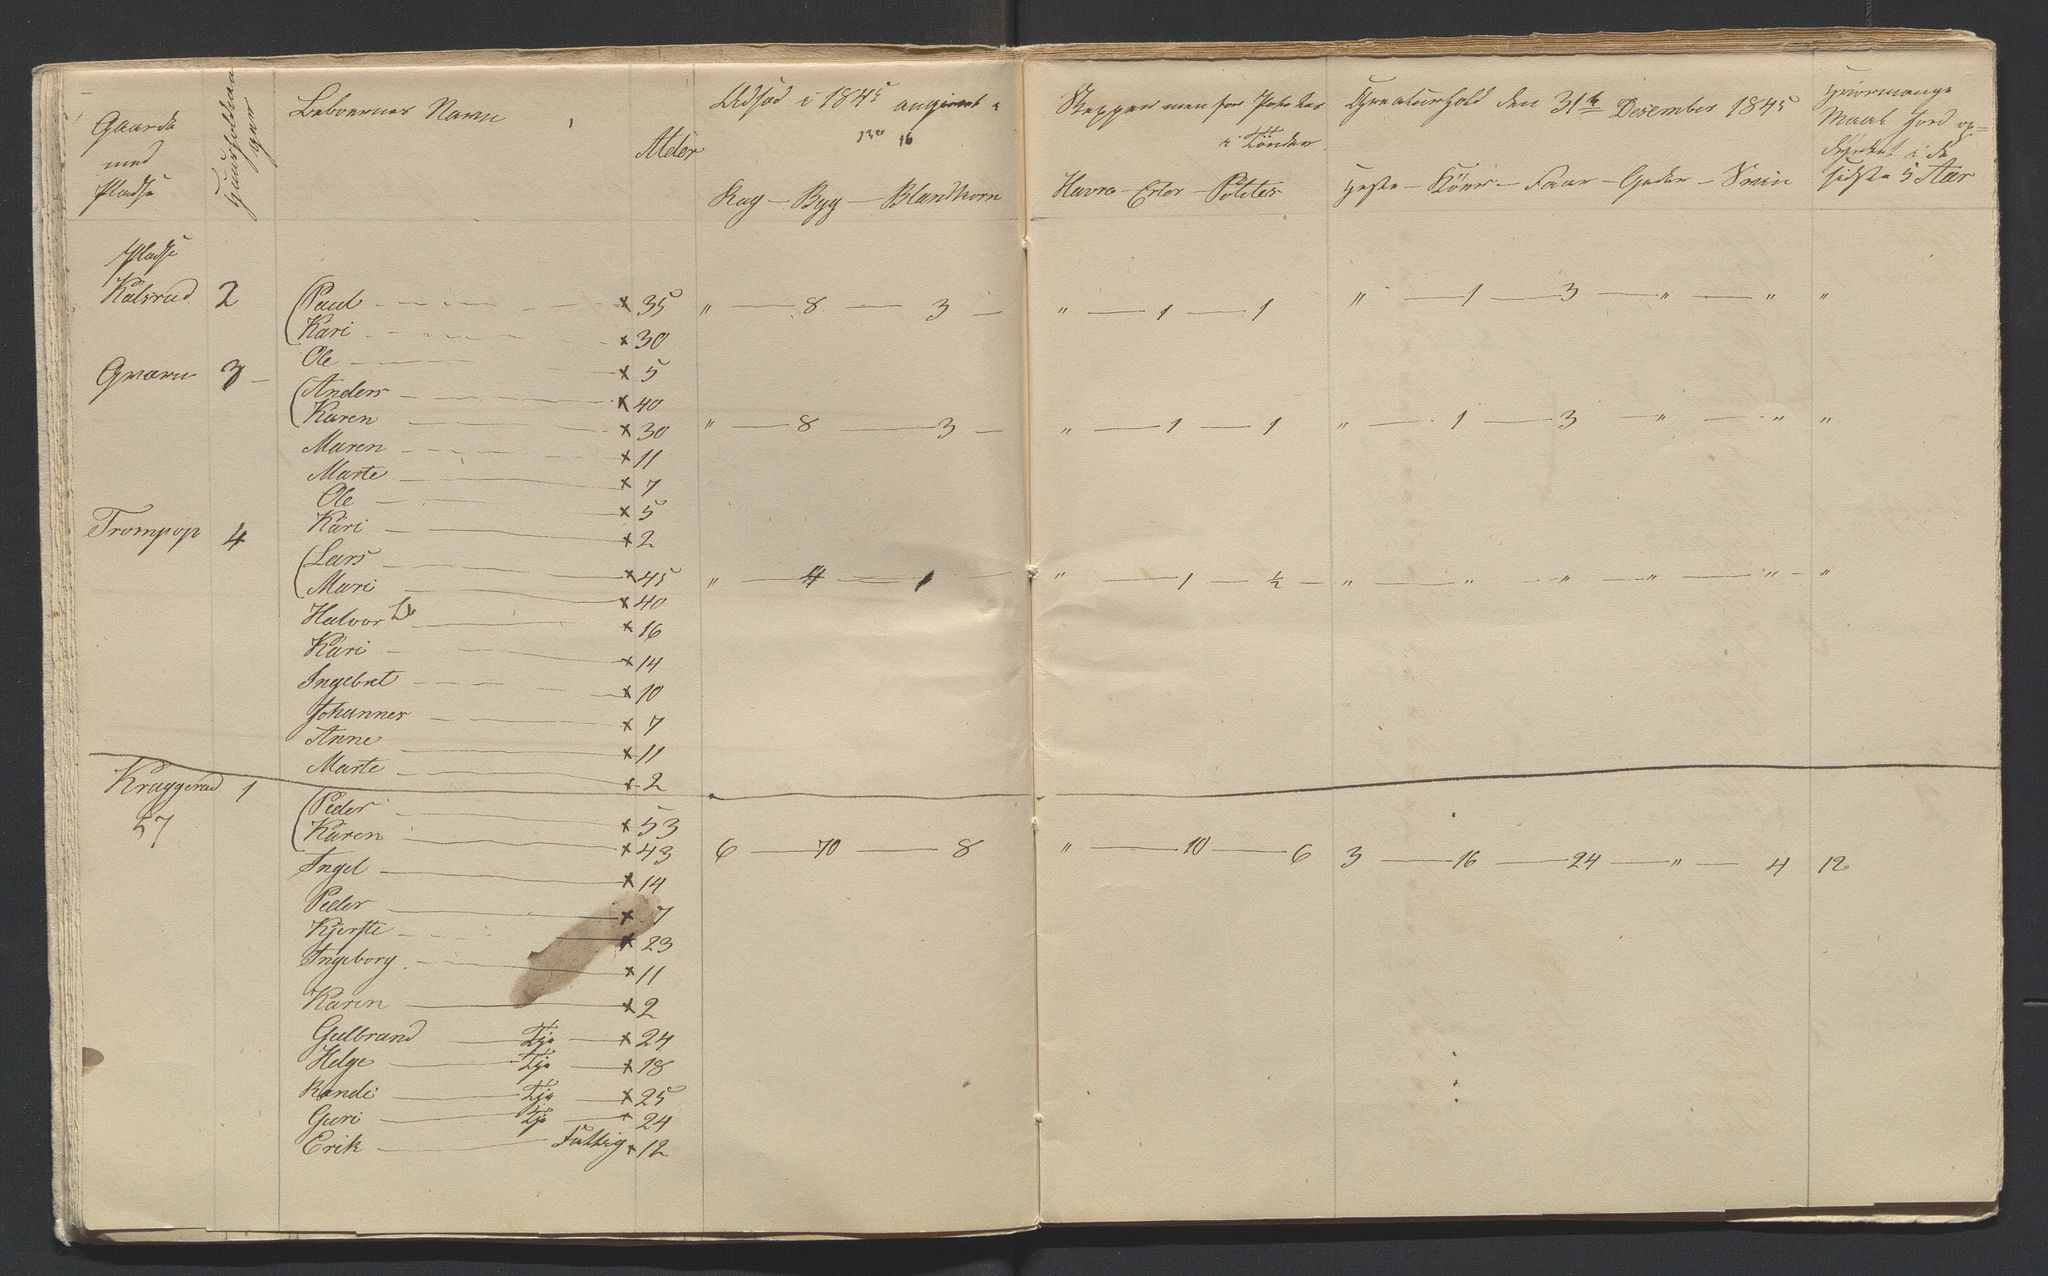 Gaarde med Pladse
Huusholdninger
Beboernes Navn
Alder
Udsæd i 1845 angivet i
16
Rug - Byg - Blandkorn
Skjepper men for Poteter
i Tønder
Havre - Erter - Poteter
Creaturhold den 31te Desember 1845
Heste - Köer - Faar - Geder - Sviin
Hvormange
Maal Jord op=
dyrket i de
sidste 5 Aar
Pladse
Kalsrud 2 Paul x 35 " 8 3 " 1 1 " 1 3 " " "
Kari x 30
Ole x 5
Qværn 3 Anders x 40
Karen x 30 " 8 3 " 1 1 " 1 3 " " "
Maren x 11
Marte x 7
Ole x 5
Kari x 2
Trompop 4 Lars x 45 " 4 1 " 1 ½ " " " " " "
Mari x 40
Halvor x 16
Kari x 14
Ingebret x 10
Johannes x 7
Anne x 11
Marte x 2
Kraggerud 1 Peder x 53
57 Karen x 43 6 70 8 " 10 6 3 16 24 " 4 12
Ingel x 14
Peder x 7
Kjersti x 23
Ingeborg x 11
Karen x 2
Gulbrand Tje x 24
Helge Tje x 18
Randi Tje x 25
Guri Tje x 24
Erik Fattig x 12